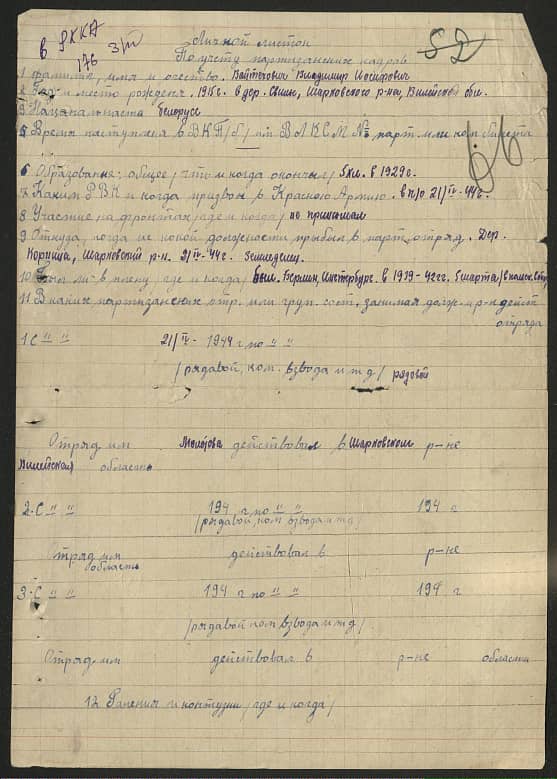 в РККА
176 3/VII
52
Личной листок
По учету партизанских кадров
1 фамилия, имя и очество. Войтехович Владимир Иосифович
2 Год и место рождения. 1915 г. в дер. Свилы, Шарковского р-на, Вилейской обл.
3 Нацанальноста белорусс
5 Время наступления в ВКП/б/ или ВЛКСМ № парт. или ком. билета
6 Образования: общее / что и когда окончил / 5 кл. в 1929 г.
7 Каким РВК и когда призвон в Красною Армию. в п/о 21/IV-44 г.
8 Участие на фронтах / где и когда / не принимал
9 Откуда, когда ис какой должности прибыл в парт. отряд. Дер.
Шарковский р-н. 21/IV-44 г. Земледелец.
10 Был ли в плену, где и когда / был. Берлин, в 1939-42 гг. 5 марта /
11 В каких партизанских отр. или груп. сост. занимая долж. и р-н дейст
отряда
1 С " " 21/IV - 1944 г по " "
/рядавой, ком. взвода и т д/ рядовой
Отряд им Молотова действовал в Шарковском р-не
Вилейская область
2. С " " 194 г по " " 194 г
/рядавой, ком взвода и т д/
Отряд им действовал в р-не
область
3. С " " 194 г по " " 194 г
/рядавой ком взвода и т д/
Отряд им действовал в р-не области
12 Ранения и контузии / где и когда /